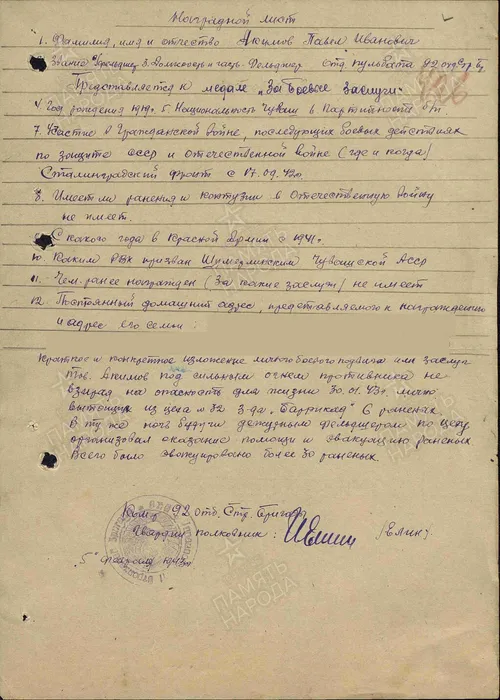 Наградной лист
1. Фамилия, имя и отчество Акимов Павел Иванович
Звание 3. Должность и часть Фельдшер Отд. пульбата 92 отд. стр. бр
Представляется к медали „За боевые заслуги"
4. Год рождения 1919г. 5. Национальность Чуваш 6 Партийность б/п
7. Участие в Гражданской войне, последующих боевых действиях
по защите СССР и отечественной войне (где и когда)
Сталинградский фронт с 17.09.42г.
8. Имеет ли ранения и контузии в отечественную войну
не имеет.
С какого года в Красной Армии с 1941г.
10. Каким РВК призван Шумерлинским Чувашской АССР
11. Чем ранее награжден (За какие заслуги) не имеет
12. Постоянный домашний адрес, представляемого к награждению
и адрес его семьи:
Краткое и конкретное изложение личного боевого подвига или заслуг
Тов. Акимов под сильным огнем противника не
взирая на опасность для жизни 30.01.43г. лично
вытощил из цеха № 32 з-да „Баррикад" 6 раненых
В ту же ночь будучи дежурным фельдшером по цеху
организовал оказание помощи и эвакуацию раненых
Всего было эвакуировано более 30 раненых.
Ком-р 92 отд. Стр. Бригады
Гвардии полковник: /Елин/
„5" февраля 1943г.
ПАМЯТЬ НАРОДА